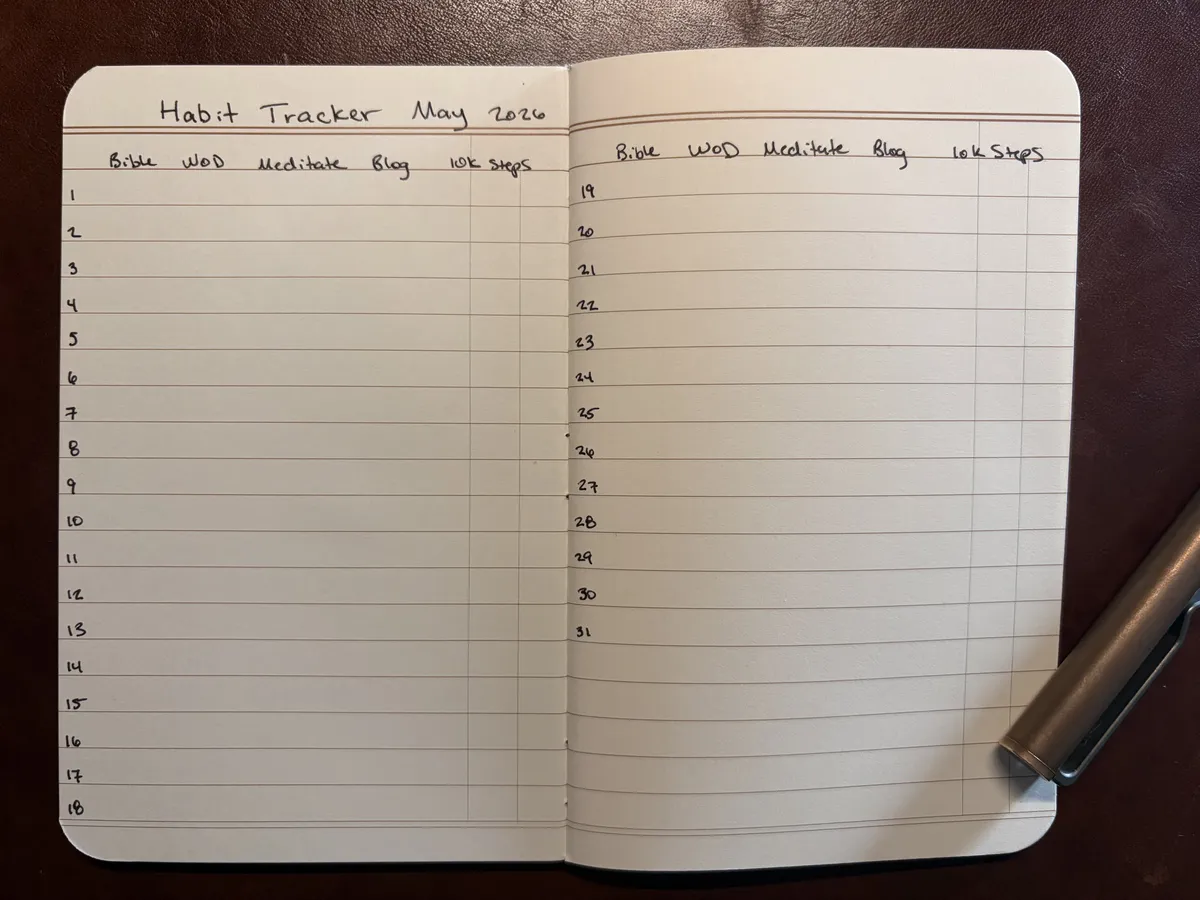 Habit Tracker May 2026
Bible WOD Meditate Blog 10K Steps
1
2
3
4
5
6
7
8
9
10
11
12
13
14
15
16
17
18
Bible WOD Meditate Blog 10K Steps
19
20
21
22
23
24
25
26
27
28
29
30
31